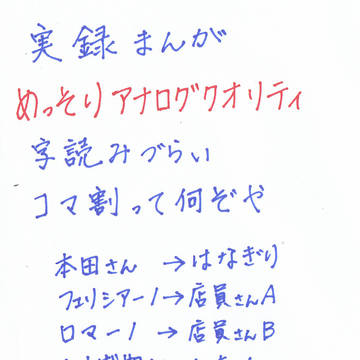 実録まんが
めっそりアナログクオリティ
字読みづらい
コマ割って何ぞや
本田さん →はなぎり
フェリシアーノ→店員さんA
ロマーノ →店員さんB